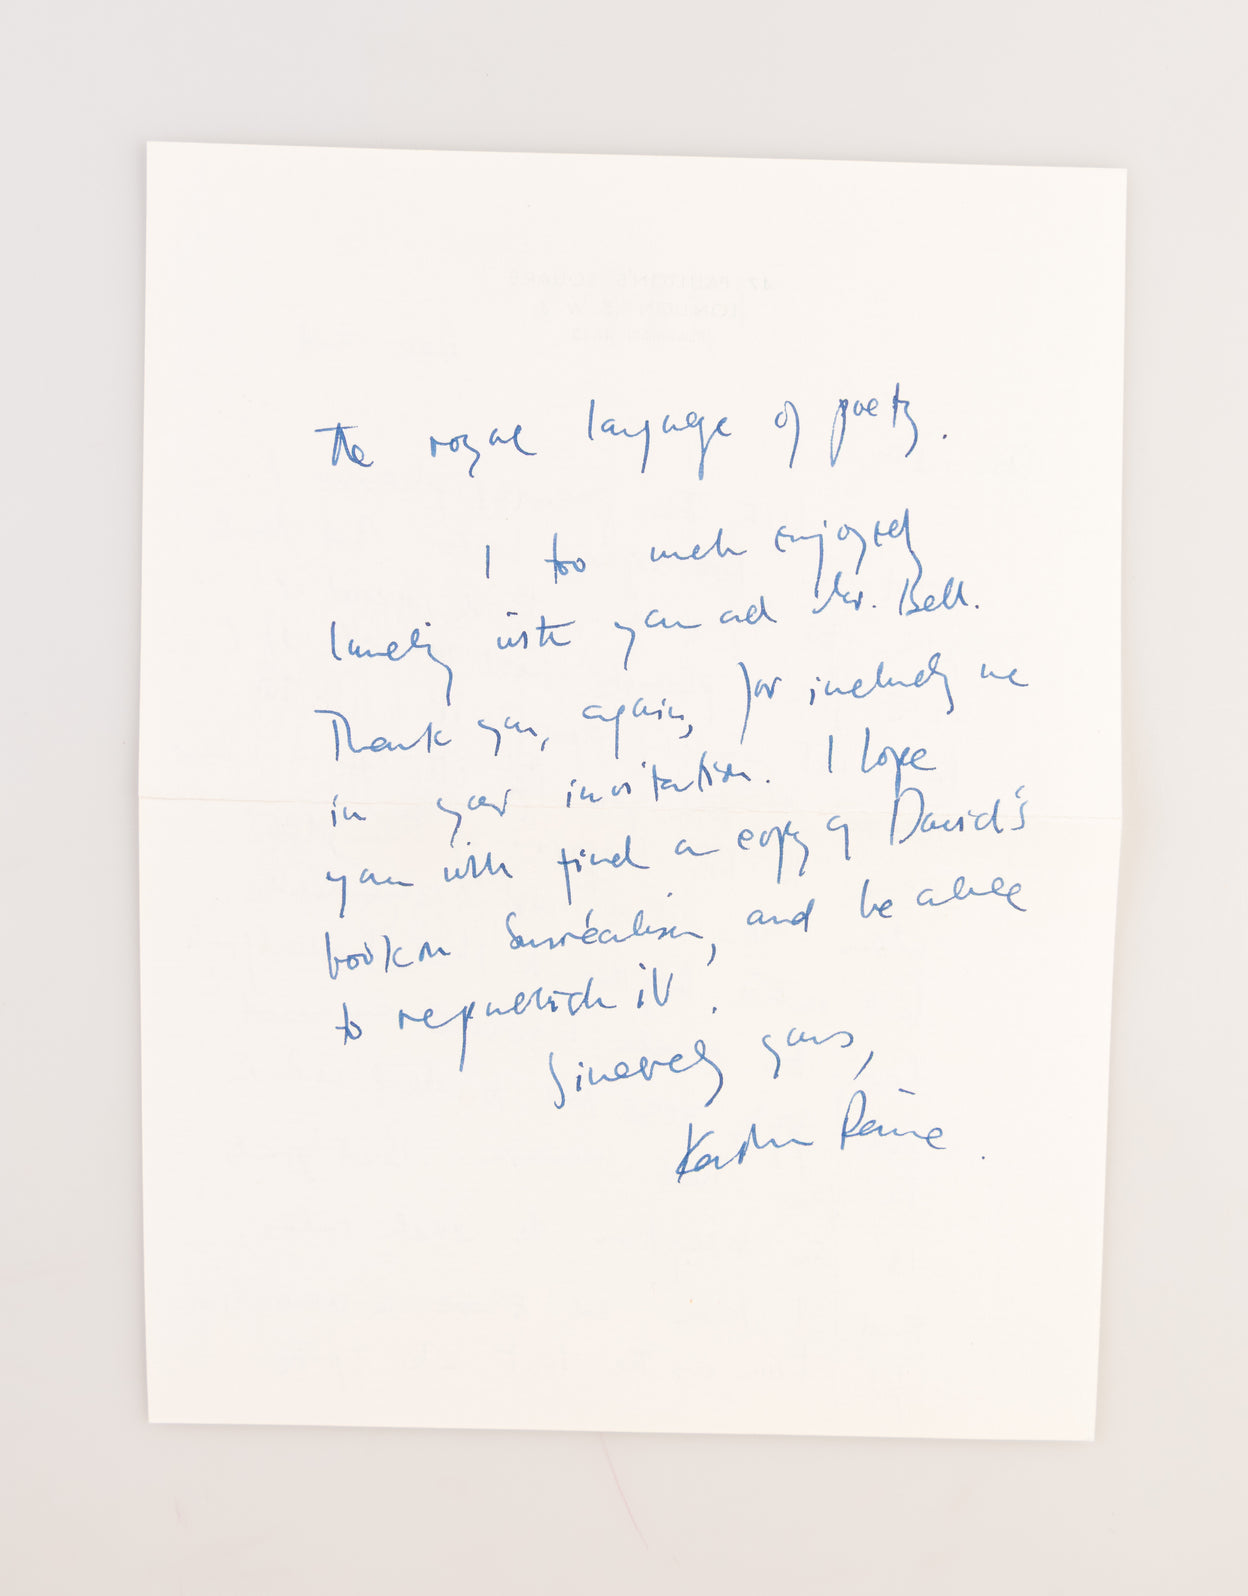 The royal language of poetry.
I too much enjoyed
lunching with you and Mr. Bell.
Thank you, again, for including me
in your invitation. I hope
you will find a copy of David's
book on Surréalism, and be able
to republish it.
Sincerely yours,
Kathleen Raine.